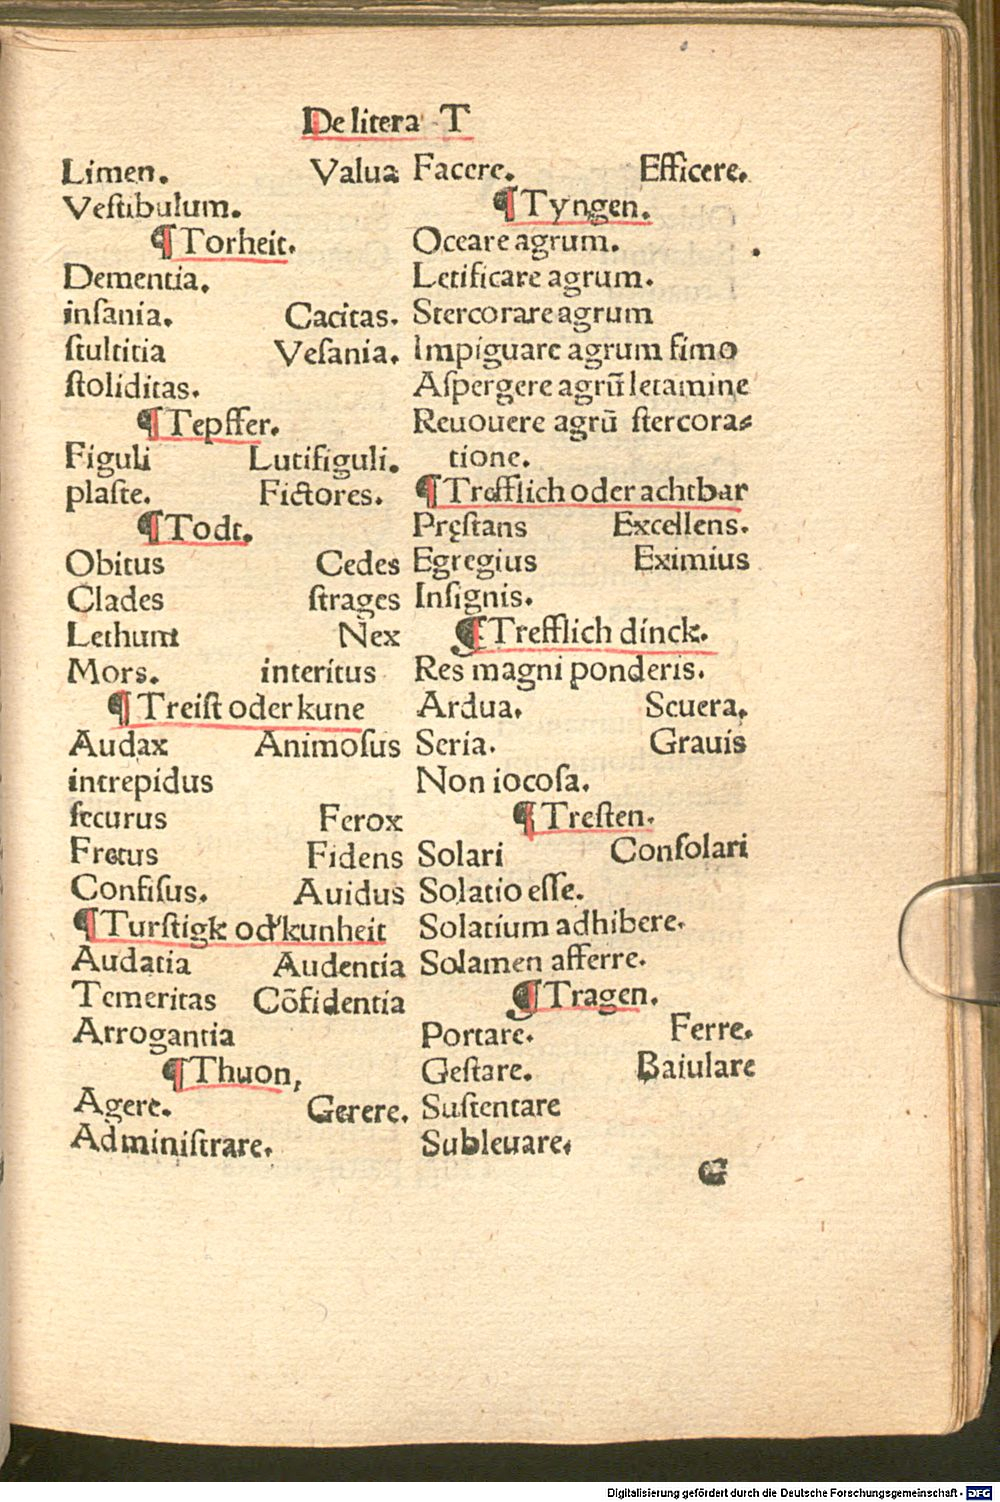 De litera T
Limen. Valua
Veſtibulum.
¶ Torheit.
Dementia.
inſania. Cacitas.
ſtultitia Veſania.
ſtoliditas.
¶ Tepffer.
Figuli Lutifiguli.
plaſte. Fictores.
¶ Todt.
Obitus Cedes
Clades ſtrages
Lethum Nex
Mors. interitus
¶ Treiſt oder kune
Audax Animoſus
intrepidus
ſecurus Ferox
Fretus Fidens
Confiſus. Auidus
¶ Turſtigk od' kunheit
Audatia Audentia
Temeritas Cōfidentia
Arrogantia
¶ Thuon,
Agere. Gerere.
Adminiſtrare.
Facere. Efficere.
¶ Tyngen.
Occare agrum.
Letificare agrum.
Stercorare agrum
Impiguare agrum fimo
Aſpergere agrū letamine
Reuouere agrū ſtercora⸗
tione.
¶ Trefflich oder achtbar
Pręſtans Excellens.
Egregius Eximius
Inſignis.
¶ Trefflich dinck.
Res magni ponderis.
Ardua. Seuera.
Seria. Grauis
Non iocoſa.
¶ Treſten.
Solari Conſolari
Solatio eſſe.
Solatium adhibere.
Solamen afferre.
¶ Tragen.
Portare. Ferre.
Geſtare. Baiulare
Suſtentare
Subleuare.
G
Digitalisierung gefördert durch die Deutsche Forschungsgemeinschaft - DFG